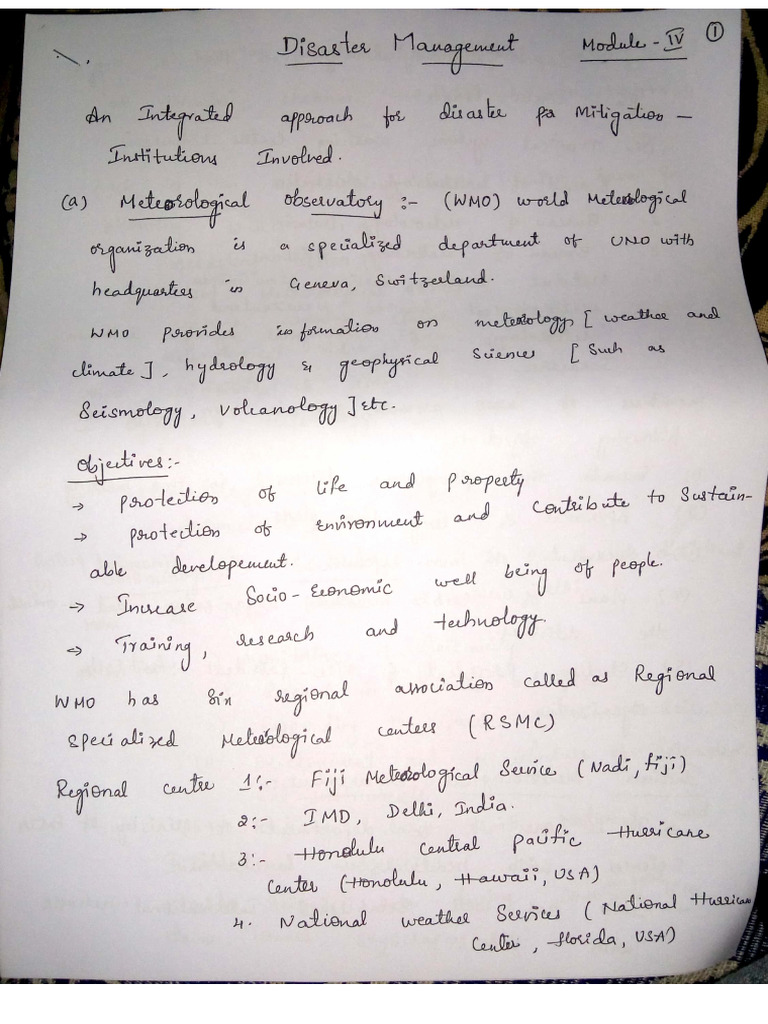 Disaster Management Module - IV 1
An Integrated approach for disaster for Mitigation -
Institutions Involved.
(a) Meteorological observatory :- (WMO) world Meteorological
organization is a specialized department of UNO with
headquarters in Geneva, Switzerland.
WMO provides information on meteorology [ weather and
climate ], hydrology & geophysical Science [ Such as
Seismology, Volcanology ] etc.
Objectives:-
→ protection of life and property
→ protection of environment and contribute to Sustain-
able developement.
→ Increase Socio-Economic well being of people.
→ Training, research and technology.
WMO has six regional association called as Regional
Specialized Meteorological centers (RSMC)
Regional centre 1:- Fiji Meteorological Service (Nadi, fiji)
2:- IMD, Delhi, India.
3:- Honolulu central pacific Hurricane
Center (Honolulu, Hawaii, USA)
4. National weather Services (National Hurrican
Center, florida, USA)